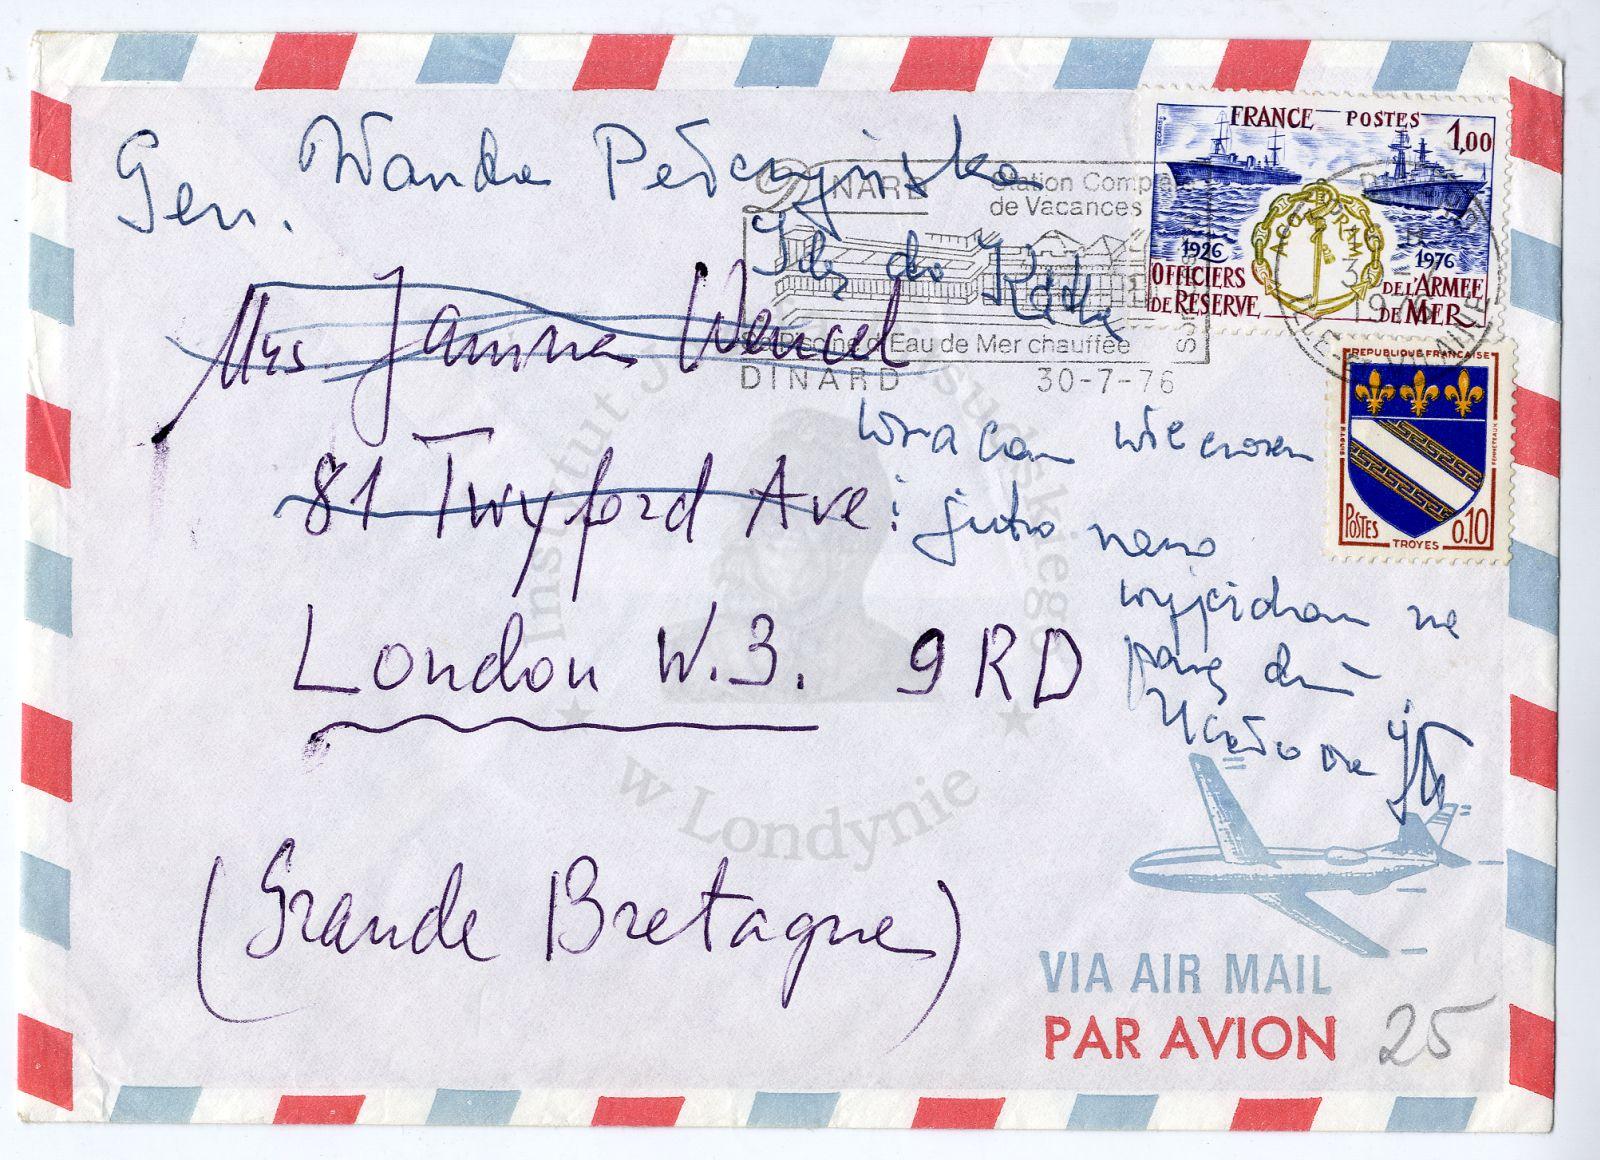 Gen. Wanda Pełczyńska
Idę do
Mrs. Janina Wencel
81 Twyford Ave.
London W.3. 9RD
(Grande Bretagne)
wracam wieczorem
i jutro rano
wyjeżdżam na
parę dni
DINARD
Station Complète
de Vacances
Sa Piscine d'Eau de Mer chauffée
DINARD 30-7-76
FRANCE POSTES
1,00
DECARIS
ACORAM
1926
1976
OFFICIERS
DE RÉSERVE
DE L'ARMÉE
DE MER
REPUBLIQUE FRANÇAISE
POSTES
0,10
TROYES
Instytut Józefa Piłsudskiego
w Londynie
VIA AIR MAIL
PAR AVION
25